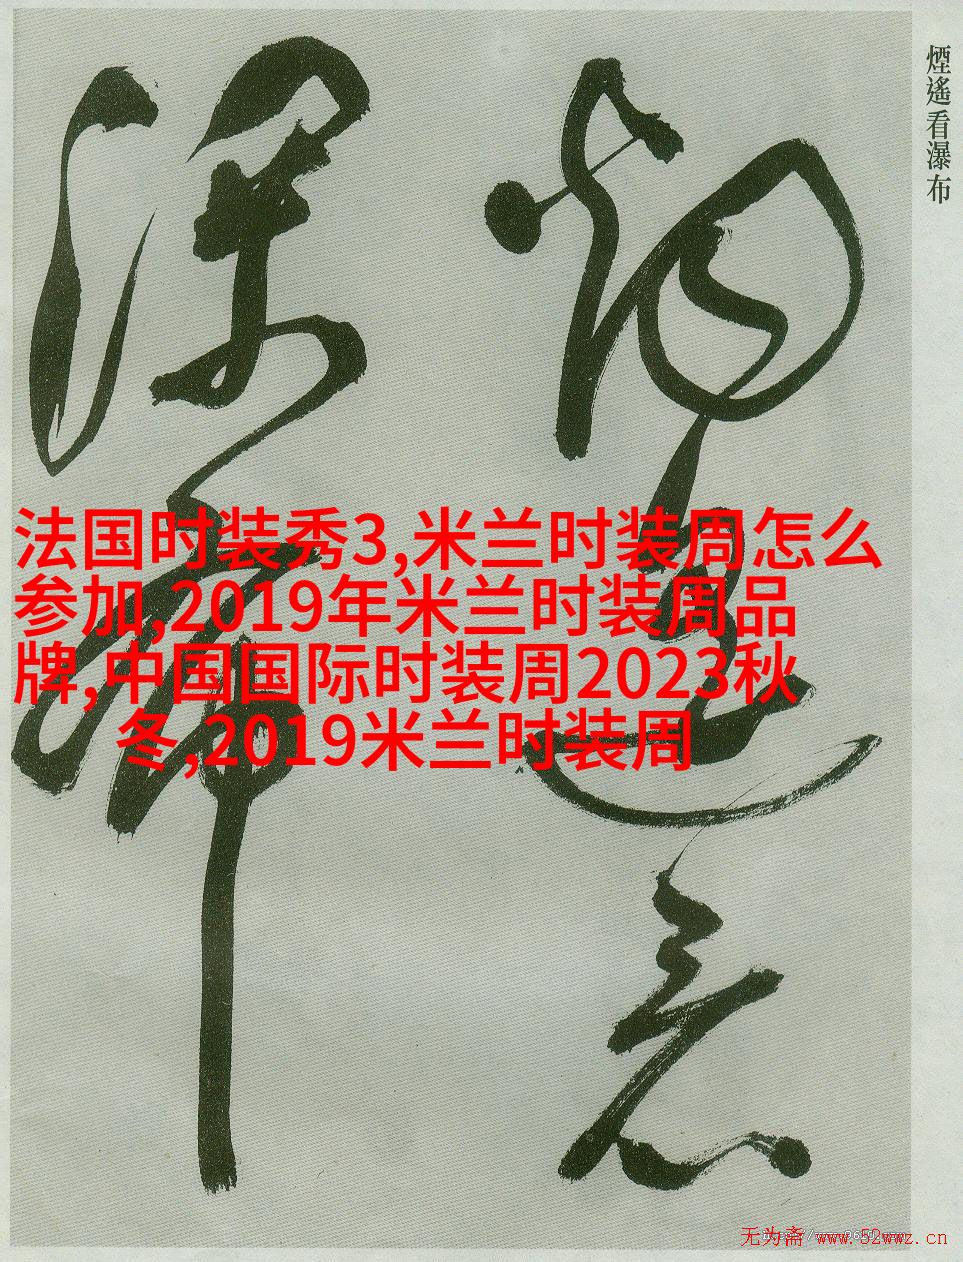 煙遙看瀑布
煙遙看
瀑布
法国时装秀3,米兰时装周怎么
参加,2019年米兰时装周品
牌,中国国际时装周2023秋
冬,2019米兰时装周
无为斋 www.52wwz.cn